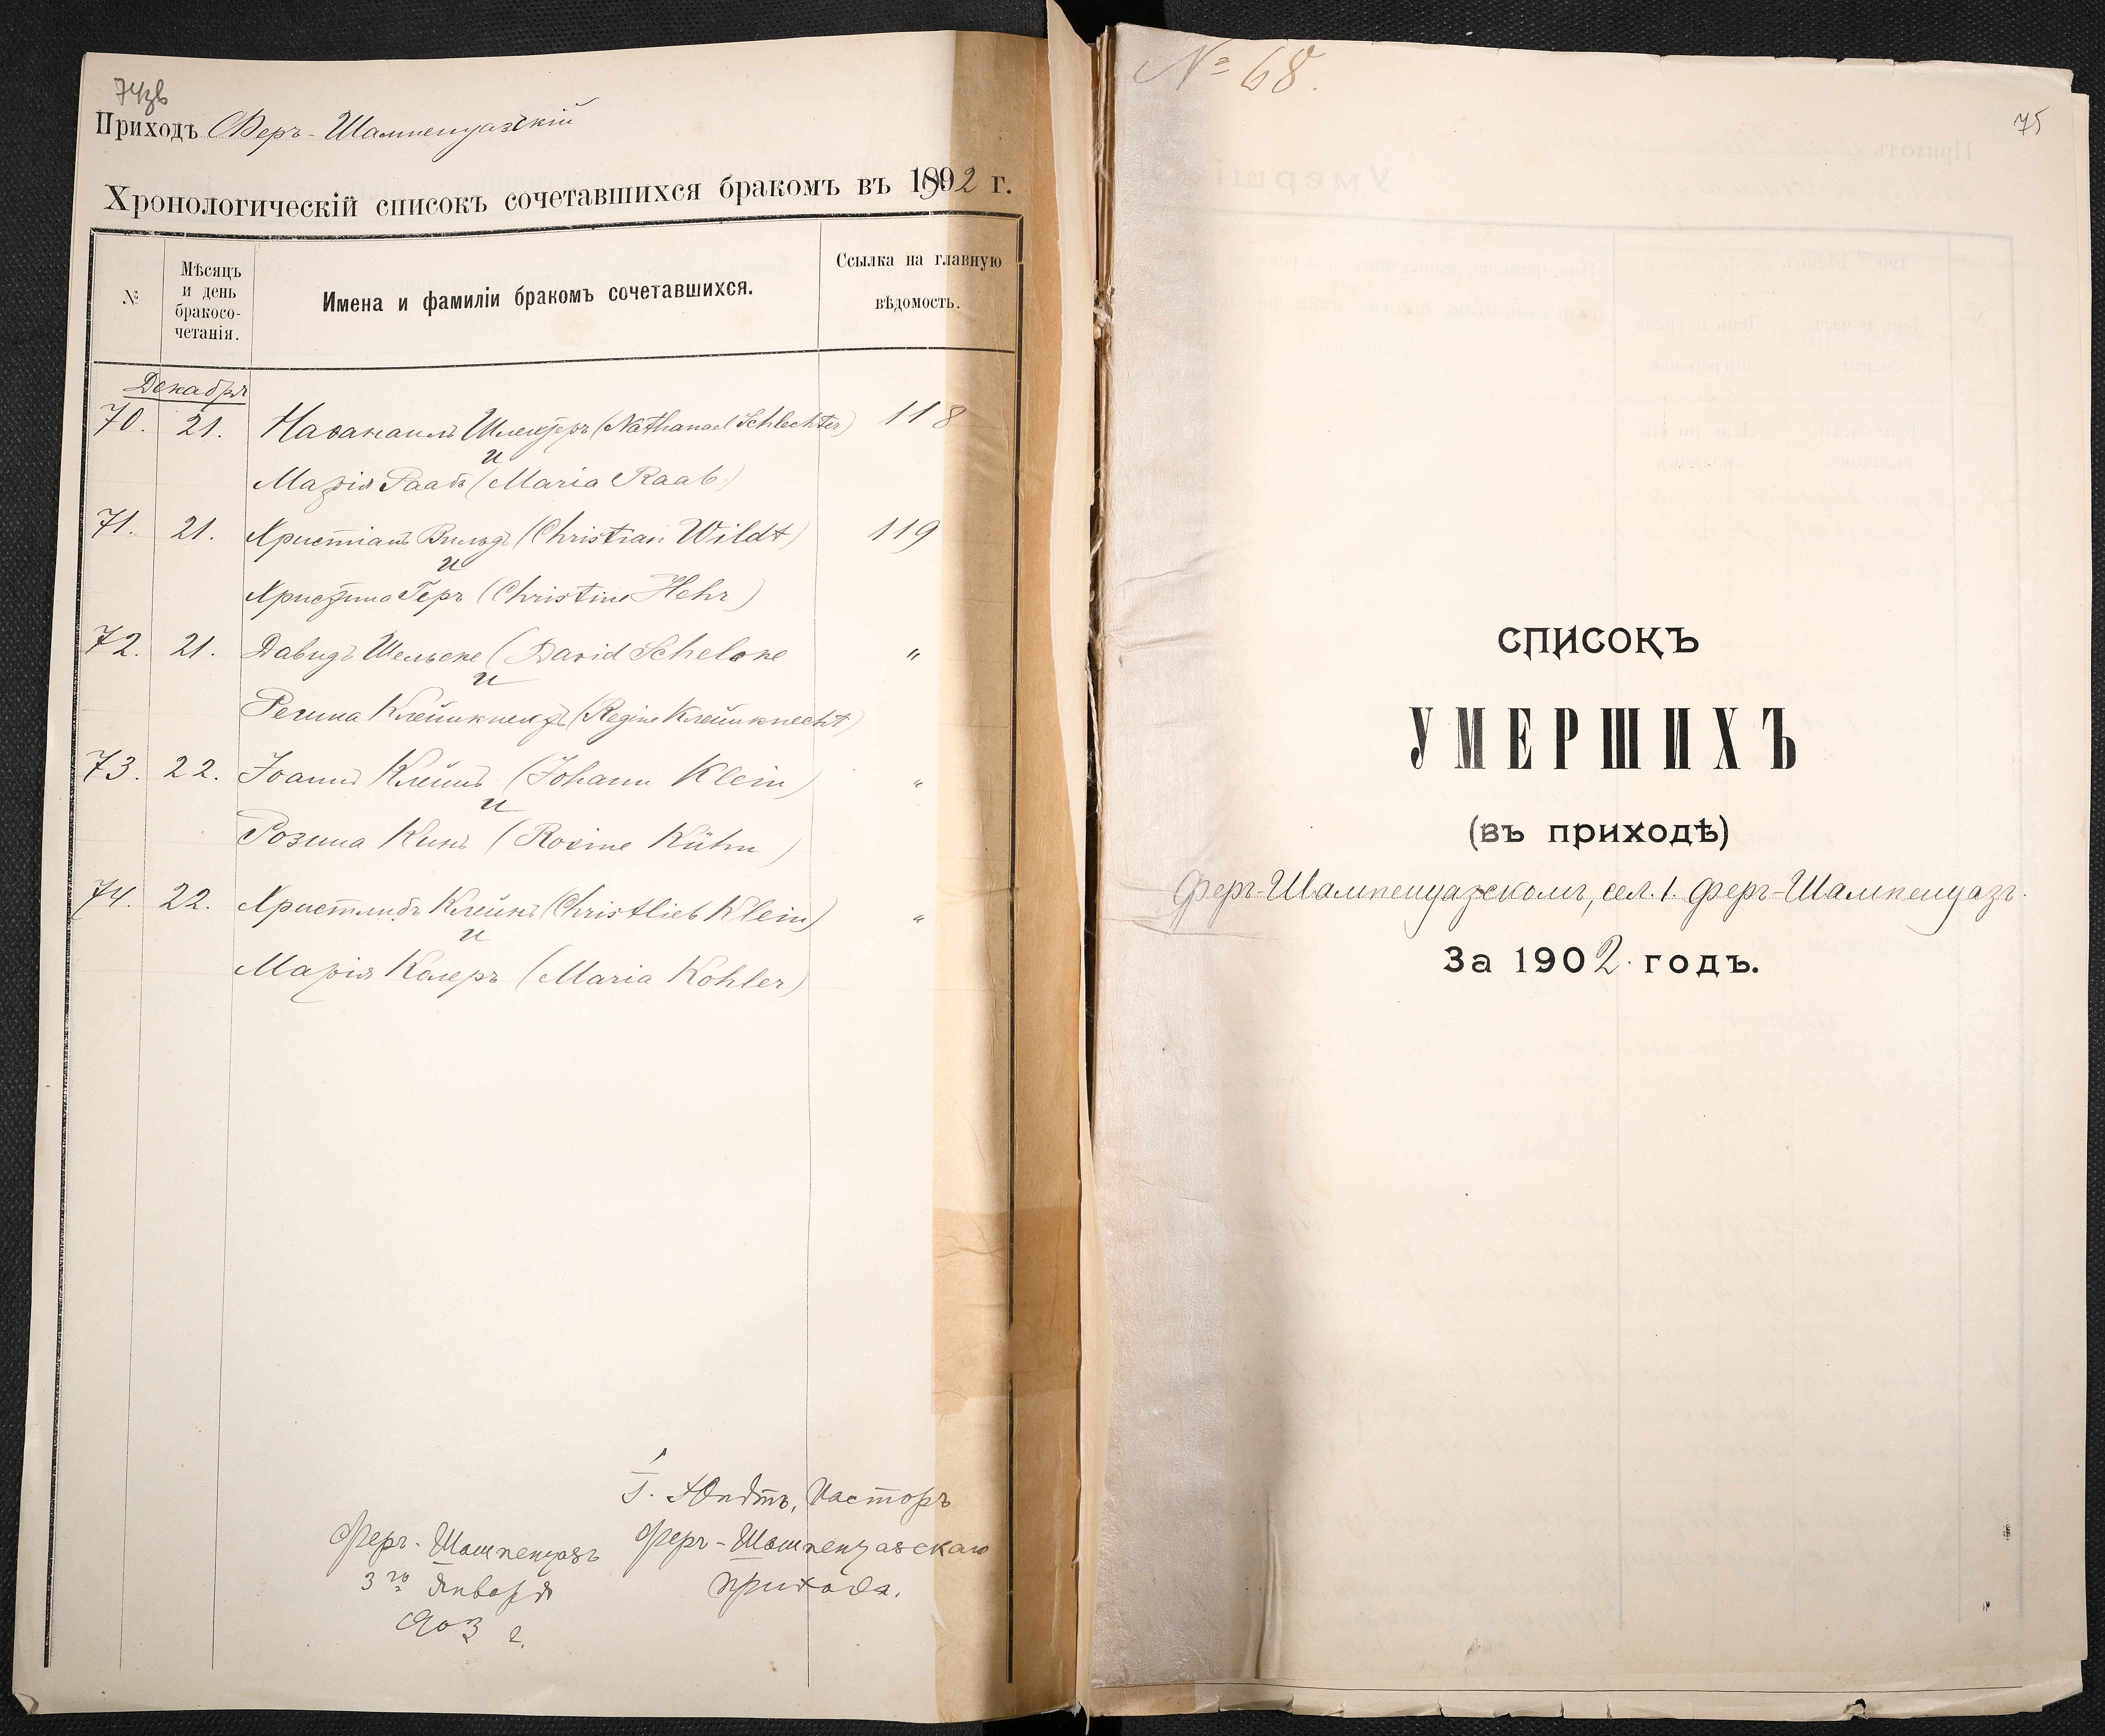 74зв
Приходъ Феръ-Шампенуазскій
Хронологическій списокъ сочетавшихся бракомъ въ 1902 г.
№
Мѣсяцъ
и день
бракосо-
четанія.
Имена и фамиліи бракомъ сочетавшихся.
Ссылка на главную
вѣдомость.
Декабря
70. 21. Наѳанаилъ Шлехтеръ (Nathanael Schlechter) 118
и
Марія Раабъ (Maria Raab)
71. 21. Христіанъ Вильдъ (Christian Wildt) 119
и
Христина Геръ (Christine Hehr)
72. 21. Давидъ Шельске (David Schelske „
и
Регина Клейнкнехтъ (Regine Kleinknecht)
73. 22. Іоаннъ Клейнъ (Johann Klein) „
и
Розина Кинъ (Rosine Kühn)
74. 22. Христлибъ Клейнъ (Christlieb Klein) „
и
Марія Колеръ (Maria Kohler)
Пасторъ
Феръ-Шампенуазскаго
прихода.
Феръ-Шампенуазъ
3го Января
1903 г.
№ 68.
75
СПИСОКЪ
УМЕРШИХЪ
(въ приходѣ)
Феръ-Шампенуазскомъ, сел. 1. Феръ-Шампенуазъ.
За 1902 годъ.